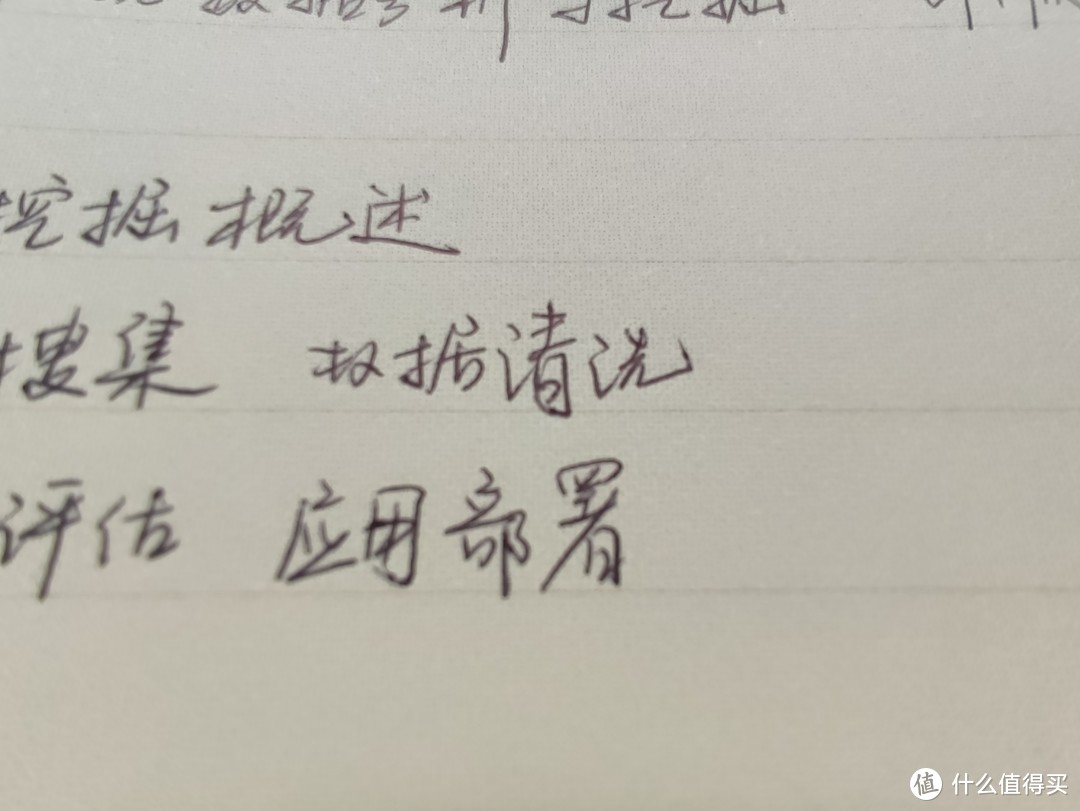 数据分析与挖掘
挖掘概述
搜集 数据清洗
评估 应用部署
值 什么值得买